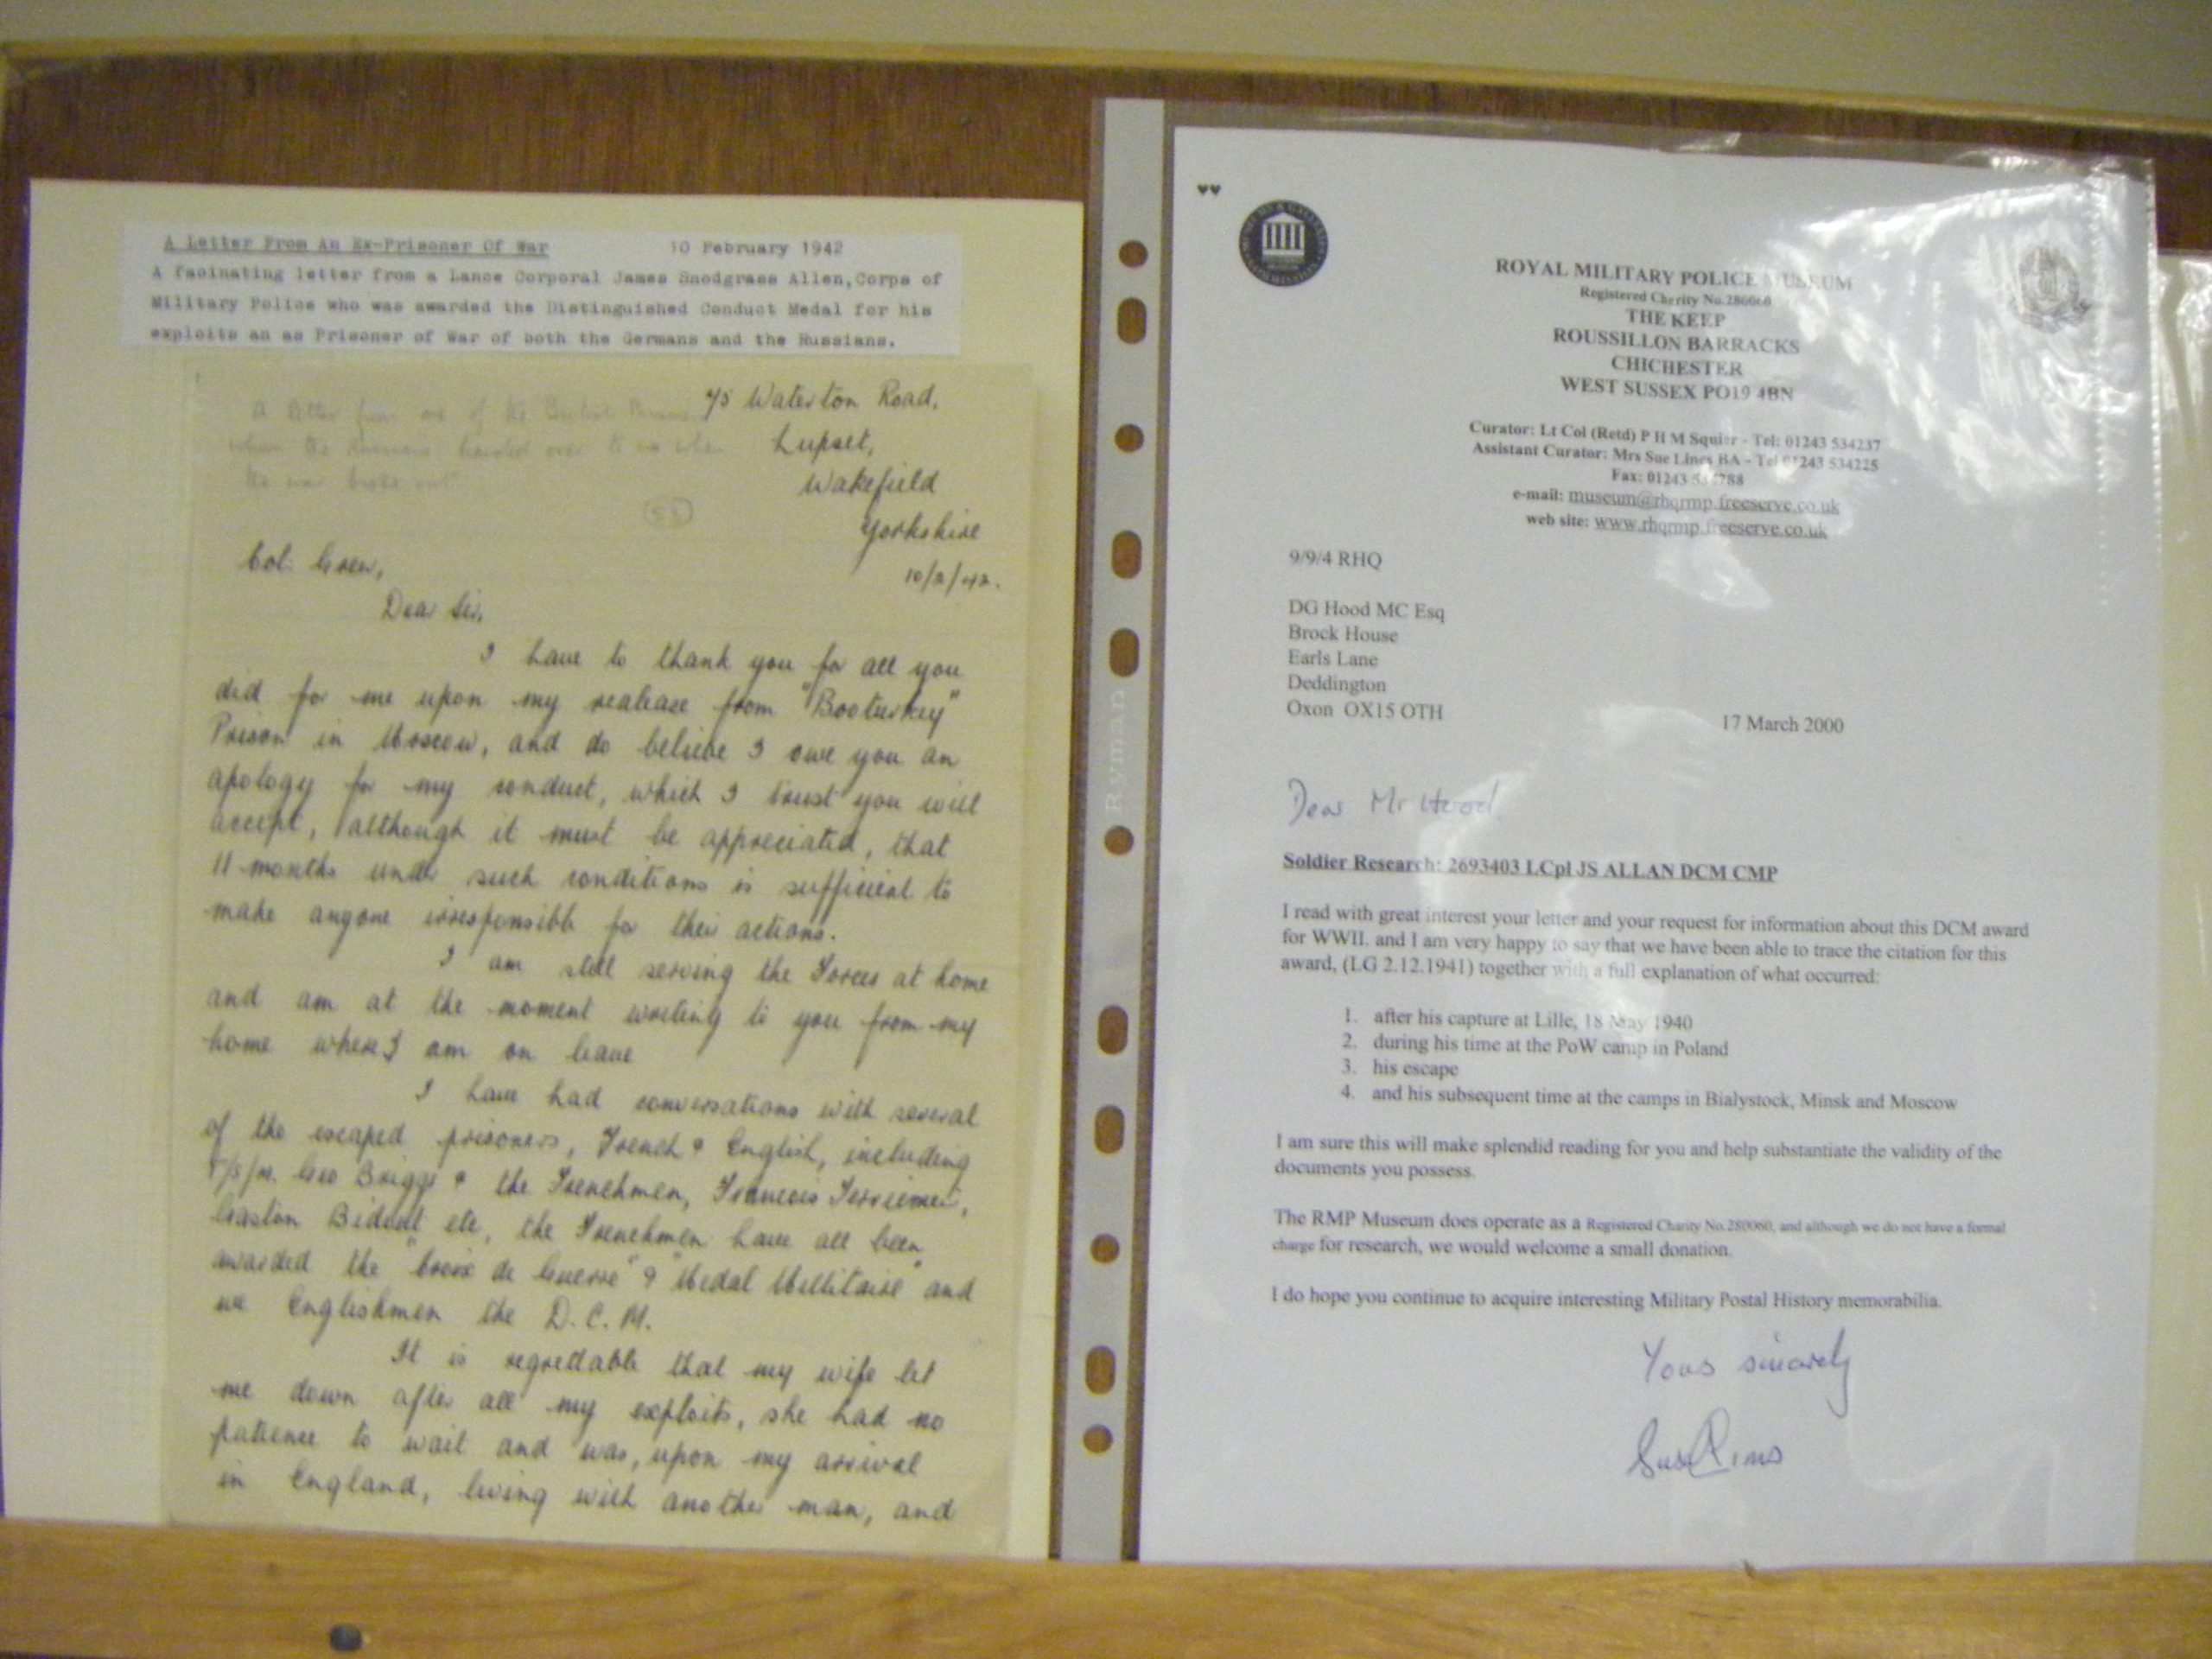 A Letter From An Ex-Prisoner Of War 10 February 1942
A facinating letter from a Lance Corporal James Snodgrass Allen, Corps of
Military Police who was awarded the Distinguished Conduct Medal for his
exploits an as Prisoner of War of both the Germans and the Russians.
A letter from one of the British
whom the Russians handed over to us when
the war broke out
Waterton Road,
Lupset,
Wakefield
Yorkshire
10/2/42.
Col.
Dear Sir,
I have to thank you for all you
did for me upon my realease from "Booturkey"
Prison in Moscow, and do believe I owe you an
apology for my conduct, which I trust you will
accept, although it must be appreciated, that
11 months under such conditions is sufficient to
make anyone irresponsible for their actions.
I am still serving the Forces at home
and am at the moment writing to you from my
home where I am on leave
I have had conversations with several
of the escaped prisoners, French & English, including
Geo Briggs & the Frenchmen, Francois
Gaston Bidault etc, the Frenchmen have all been
awarded the "Croix de Guerre" & "Medal Millitaire" and
we Englishmen the D.C.M.
It is regrettable that my wife let
me down after all my exploits, she had no
patience to wait and was, upon my arrival
in England, living with another man, and
Ryman
ROYAL MILITARY POLICE MUSEUM
Registered Charity No.280060
THE KEEP
ROUSSILLON BARRACKS
CHICHESTER
WEST SUSSEX PO19 4BN
Curator: Lt Col (Retd) P H M Squier - Tel: 01243 534237
Assistant Curator: Mrs Sue Lines BA - Tel 01243 534225
Fax: 01243
e-mail: museum@rhqrmp.freeserve.co.uk
web site: www.rhqrmp.freeserve.co.uk
9/9/4 RHQ
DG Hood MC Esq
Brock House
Earls Lane
Deddington
Oxon OX15 OTH
17 March 2000
Dear Mr Hood
Soldier Research: 2693403 LCpl JS ALLAN DCM CMP
I read with great interest your letter and your request for information about this DCM award
for WWII. and I am very happy to say that we have been able to trace the citation for this
award, (LG 2.12.1941) together with a full explanation of what occurred:
1. after his capture at Lille, 18 May 1940
2. during his time at the PoW camp in Poland
3. his escape
4. and his subsequent time at the camps in Bialystock, Minsk and Moscow
I am sure this will make splendid reading for you and help substantiate the validity of the
documents you possess.
The RMP Museum does operate as a Registered Charity No.280060, and although we do not have a formal
charge for research, we would welcome a small donation.
I do hope you continue to acquire interesting Military Postal History memorabilia.
Yours sincerely
Sue Lines